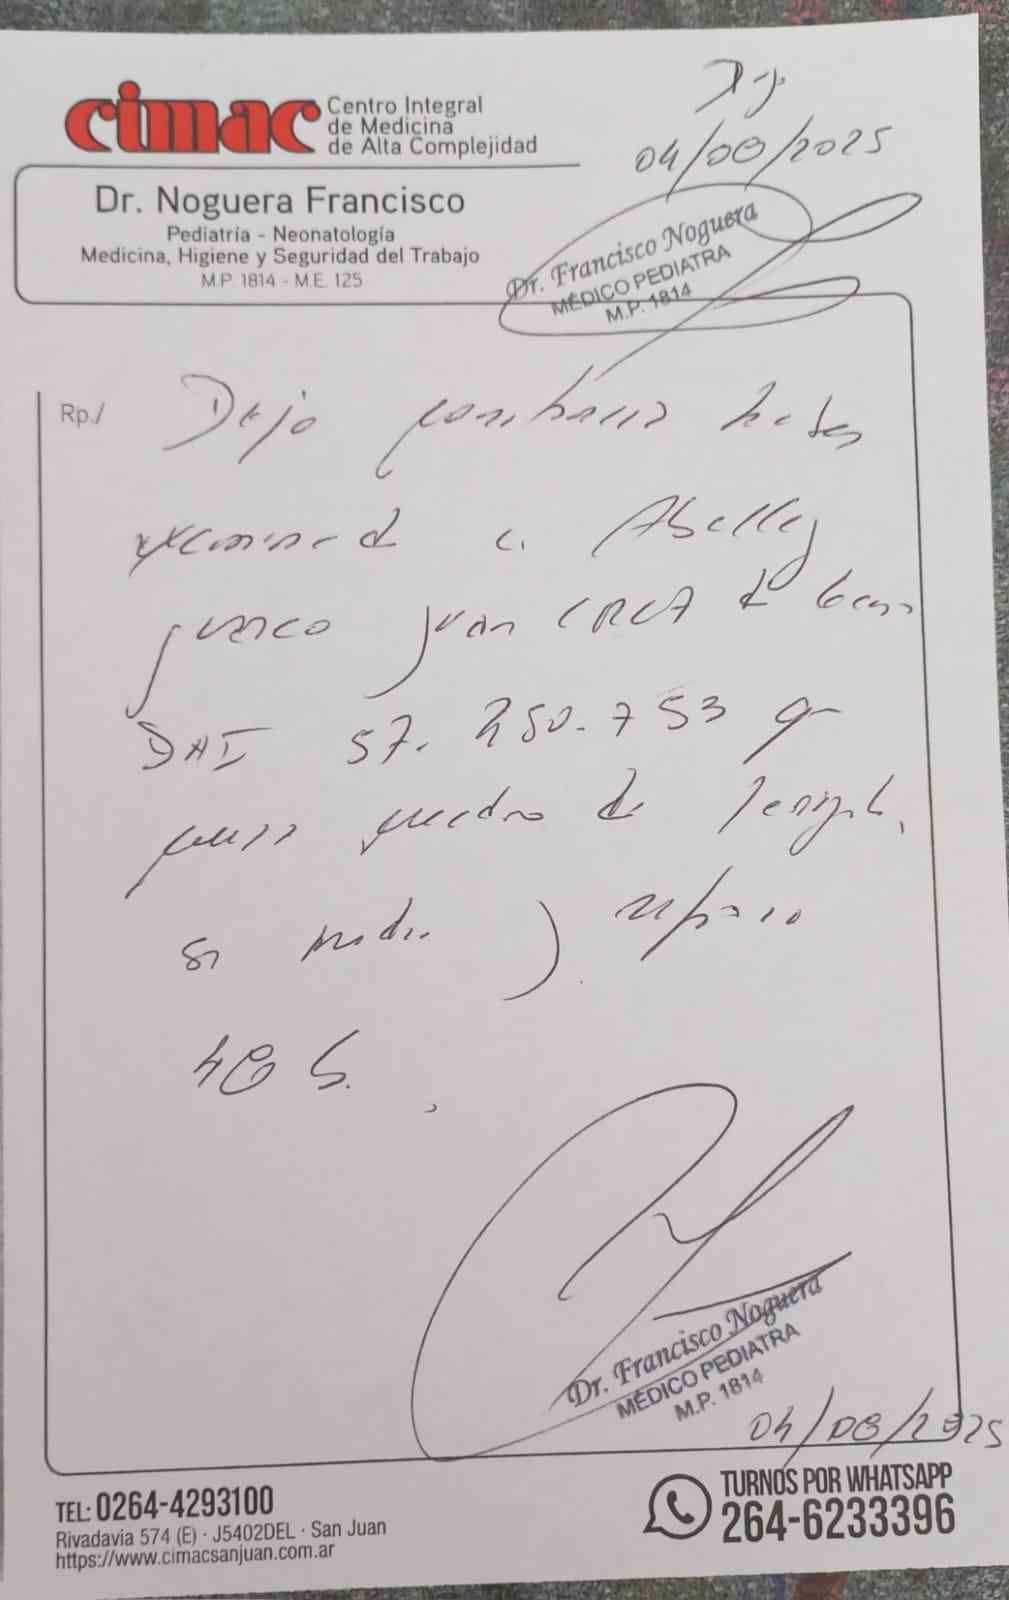 cimac Centro Integral
de Medicina
de Alta Complejidad
Dr. Noguera Francisco
Pediatría - Neonatología
Medicina, Higiene y Seguridad del Trabajo
M.P. 1814 - M.E. 125
04/08/2025
Dr. Francisco Noguera
MÉDICO PEDIATRA
M.P. 1814
Rp./ Dejo constancia haber
examinado a
Juan de
DNI 57.250.753 q
cuadro de
se y reposo
48 h.
Dr. Francisco Noguera
MÉDICO PEDIATRA
M.P. 1814
04/08/2025
TEL: 0264-4293100
Rivadavia 574 (E) · J5402DEL · San Juan
https://www.cimacsanjuan.com.ar
TURNOS POR WHATSAPP
264-6233396